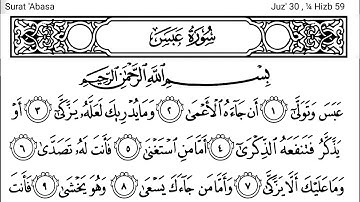 Surat 'Abasa
Juz' 30 , ¼ Hizb 59
سُورَةُ عَبَسَ
بِسْمِ اللَّهِ الرَّحْمَٰنِ الرَّحِيمِ
عَبَسَ وَتَوَلَّىٰٓ ١ أَن جَآءَهُ ٱلْأَعْمَىٰ ٢ وَمَا يُدْرِيكَ لَعَلَّهُۥ يَزَّكَّىٰٓ ٣ أَوْ
يَذَّكَّرُ فَتَنفَعَهُ ٱلذِّكْرَىٰٓ ٤ أَمَّا مَنِ ٱسْتَغْنَىٰ ٥ فَأَنتَ لَهُۥ تَصَدَّىٰ ٦
وَمَا عَلَيْكَ أَلَّا يَزَّكَّىٰ ٧ وَأَمَّا مَن جَآءَكَ يَسْعَىٰ ٨ وَهُوَ يَخْشَىٰ ٩ فَأَنتَ